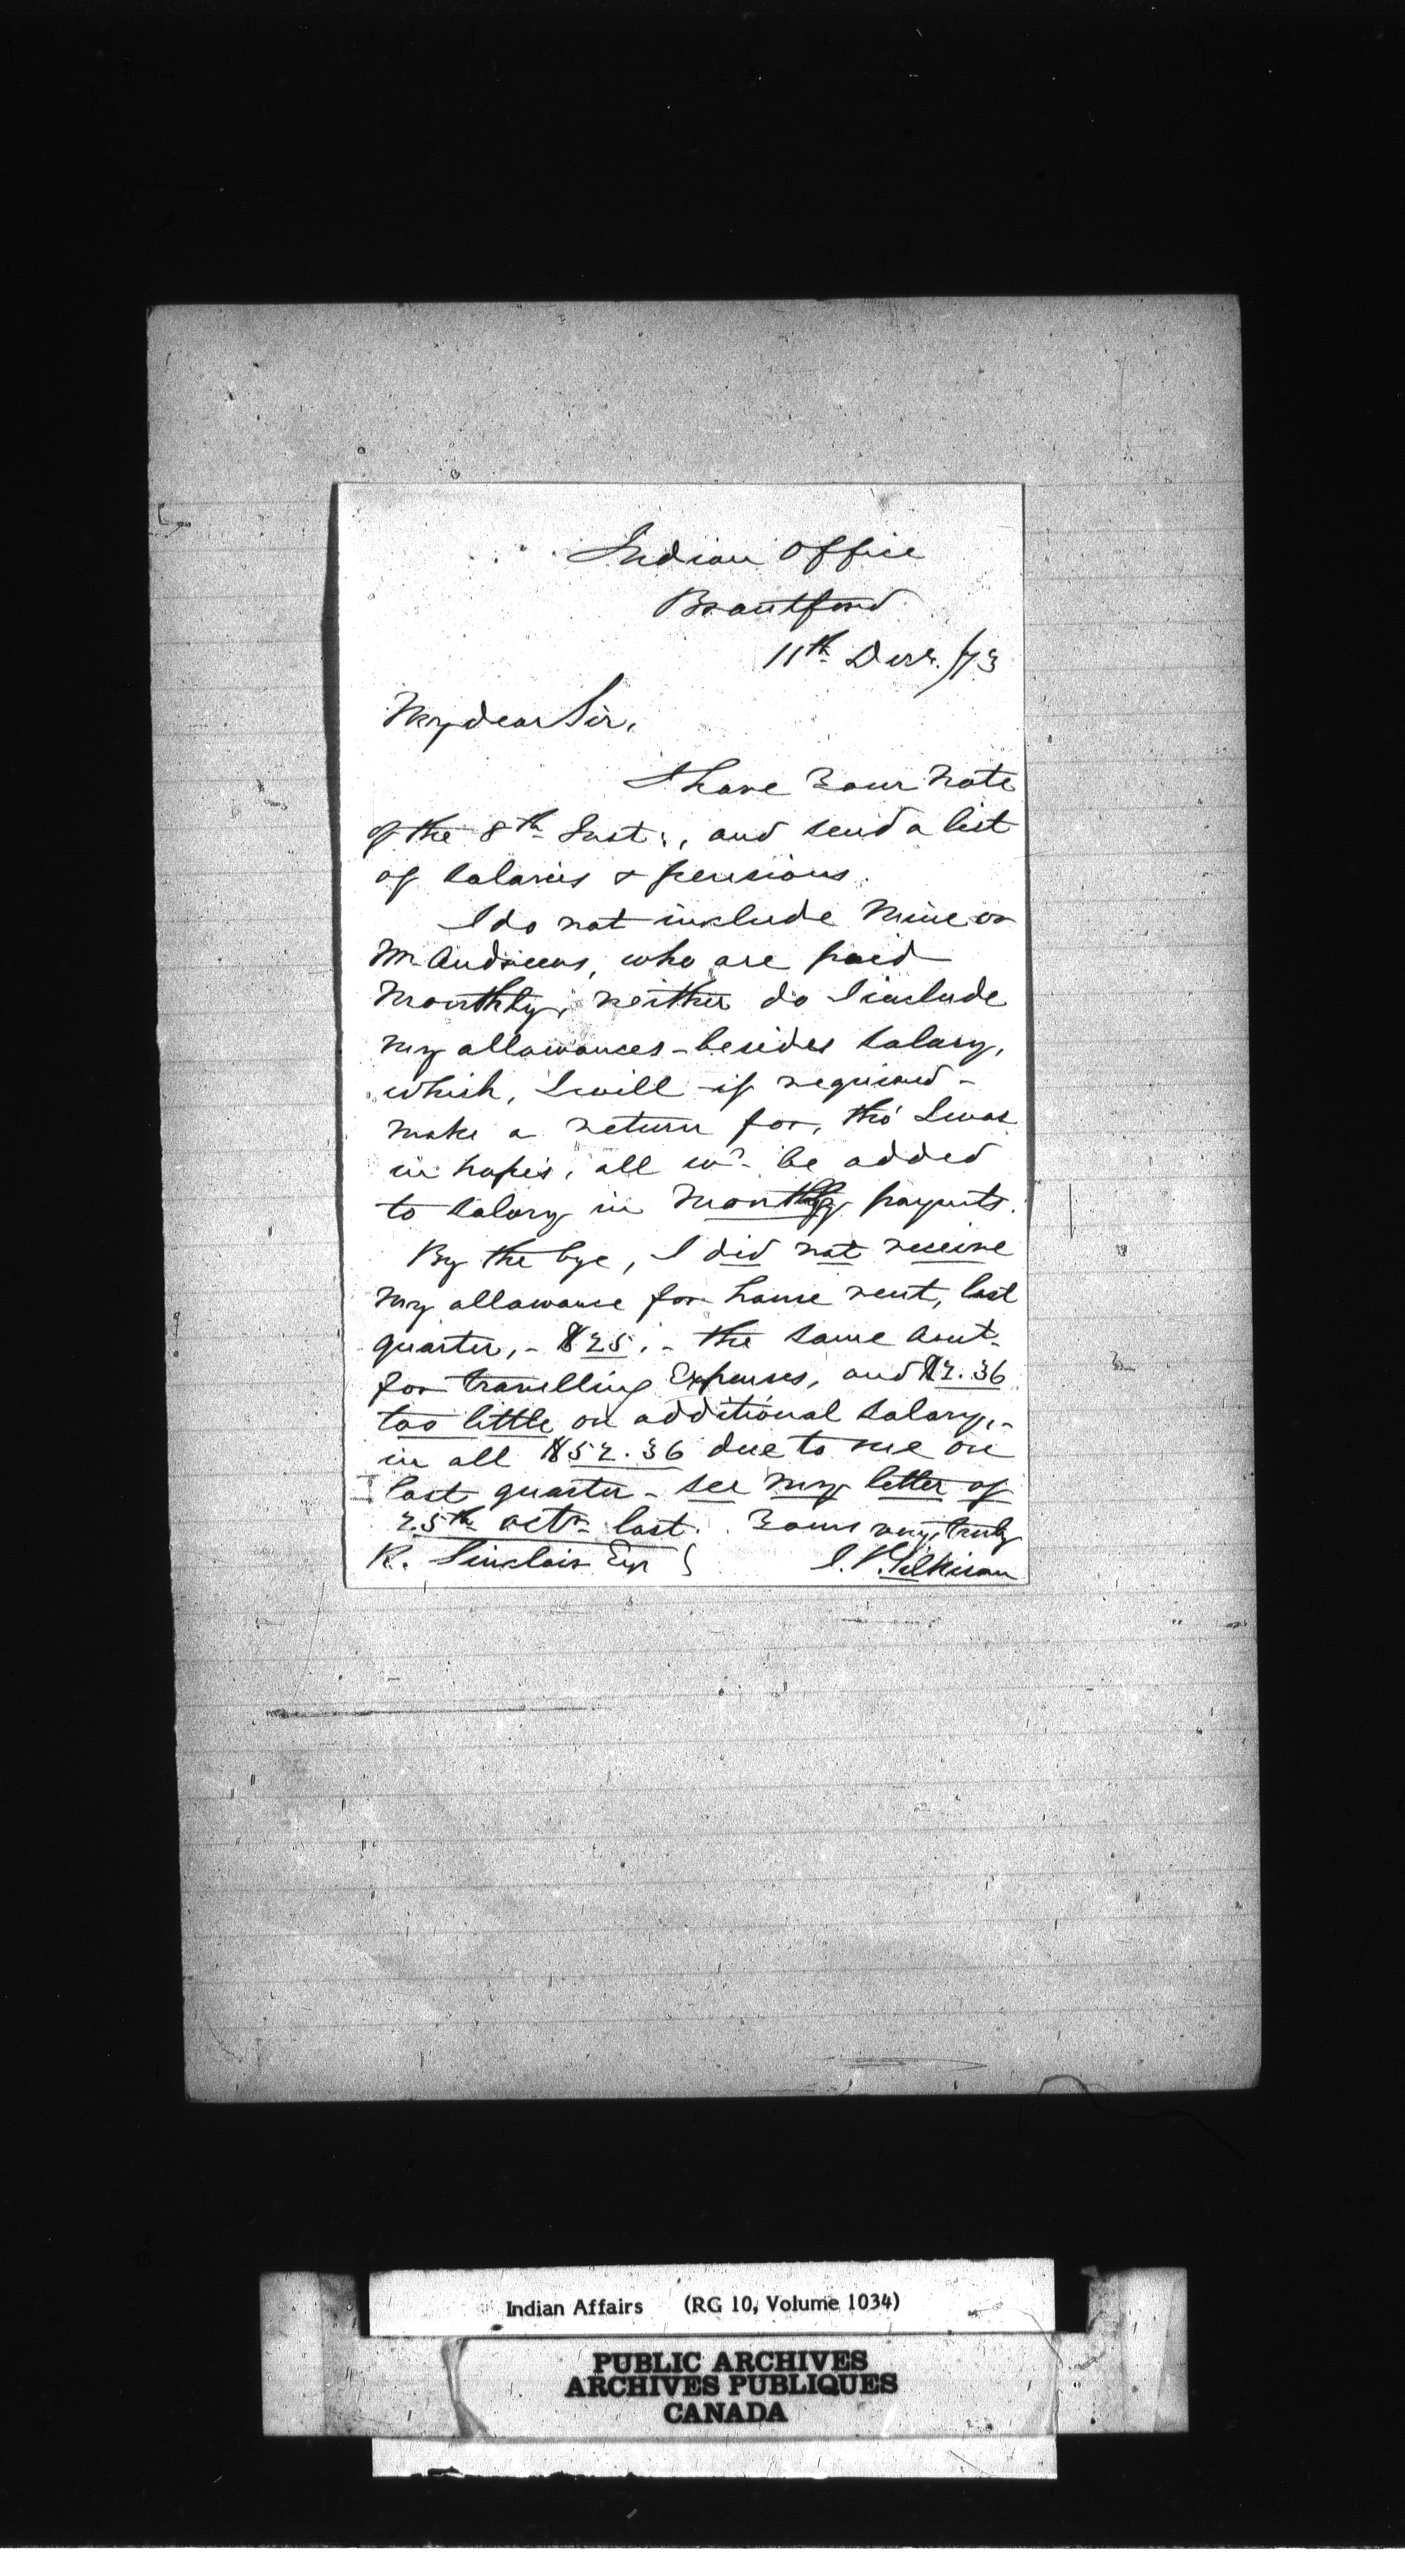 Indian Office
Brantford
11th Decr. /73
My dear Sir,
I have Your Note
of the 8th Inst:, and send a list
of Salaries & pensions.
I do not include Mine or
Mr Andrews, who are paid
Monthly, neither do I include
my allowances - besides Salary,
which, I will - if required -
make a return for, tho' I was
in hopes, all wd. be added
to Salary in Monthly paymts.
By the bye, I did not receive
my allowance for house rent, last
quarter, - $25, - the same Amt.
for travelling Expenses, and $2.36
too little on additional Salary, -
in all $52.36 due to me on
last quarter - see my letter of
25th Octr. last. Yours very truly
R. Sinclair Esqr } J. T. Gilkison
Indian Affairs (RG 10, Volume 1034)
PUBLIC ARCHIVES
ARCHIVES PUBLIQUES
CANADA